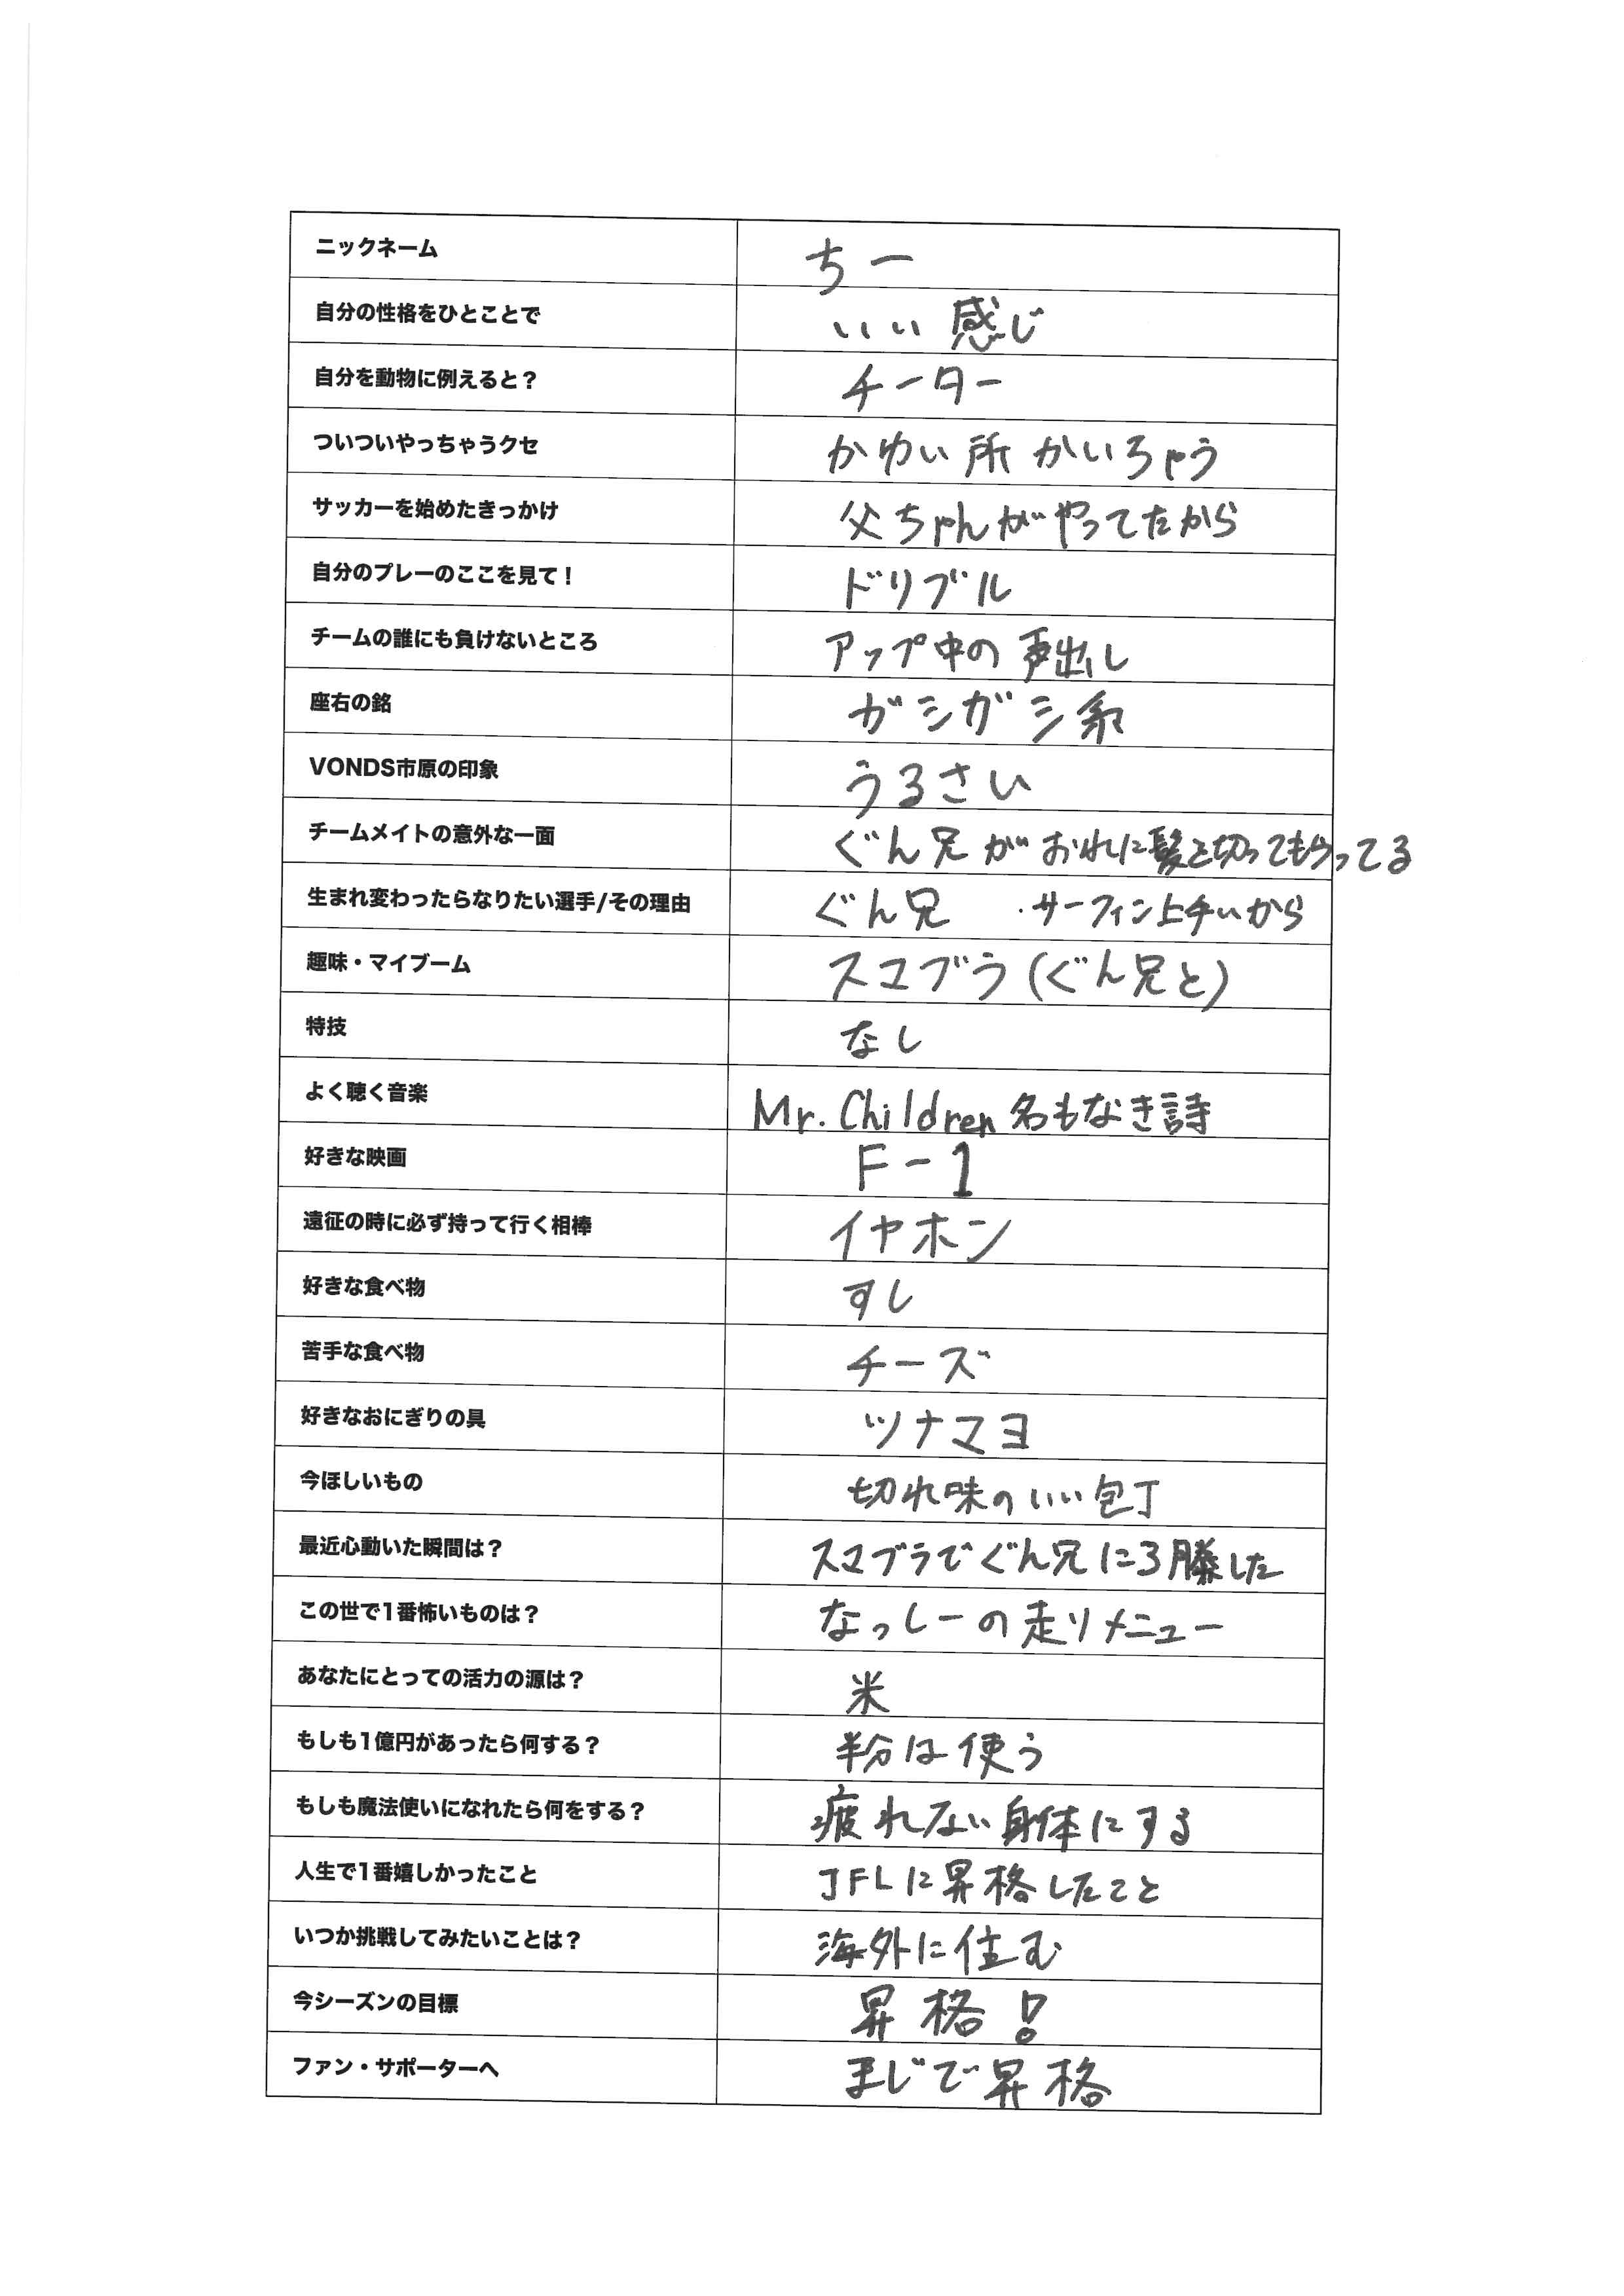 ニックネーム ちー
自分の性格をひとことで いい感じ
自分を動物に例えると? チーター
ついついやっちゃうクセ かゆい所かいちゃう
サッカーを始めたきっかけ 父ちゃんがやってたから
自分のプレーのここを見て! ドリブル
チームの誰にも負けないところ アップ中の声出し
座右の銘 ガシガシ系
VONDS市原の印象 うるさい
チームメイトの意外な一面 ぐん兄がおれに髪を切ってもらってる
生まれ変わったらなりたい選手/その理由 ぐん兄 ・サーフィン上手いから
趣味・マイブーム スマブラ(ぐん兄と)
特技 なし
よく聴く音楽 Mr.Children 名もなき詩
好きな映画 F-1
遠征の時に必ず持って行く相棒 イヤホン
好きな食べ物 すし
苦手な食べ物 チーズ
好きなおにぎりの具 ツナマヨ
今ほしいもの 切れ味のいい包丁
最近心動いた瞬間は? スマブラでぐん兄に3勝した
この世で1番怖いものは? なっしーの走りメニュー
あなたにとっての活力の源は? 米
もしも1億円があったら何する? 半分は使う
もしも魔法使いになれたら何をする? 疲れない身体にする
人生で1番嬉しかったこと JFLに昇格したこと
いつか挑戦してみたいことは? 海外に住む
今シーズンの目標 昇格!
ファン・サポーターへ まじで昇格